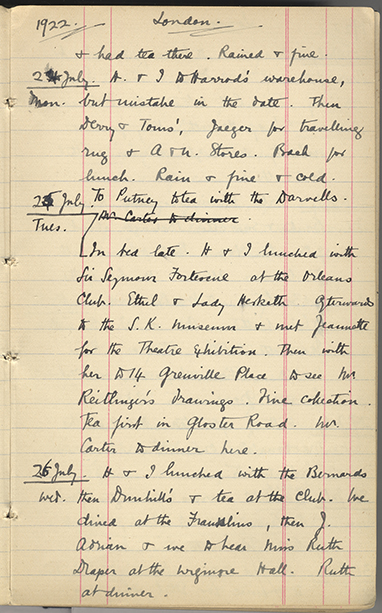 1922. London.
& had tea there. Rained & fine.
24 July. H. & I to Harrod's warehouse,
Mon. but mistake in the date. Then
Derry & Toms', Jaeger for travelling
rug & A & N. Stores. Back for
lunch. Rain & fine & cold.
25 July To Putney to tea with the Darvells.
Mr Carter to dinner.
Tues.
In bed late. H & I lunched with
Sir Seymour Fortescue at the Orleans
Club. Ethel & Lady Hesketh. Afterwards
to the S.K. Museum & met Jeannette
for the Theatre Exhibition. Then with
her to 14 Grenville Place to see Mr
Reitlinger's Drawings. Fine collection.
Tea first in Gloster Road. Mr.
Carter to dinner here.
26 July. H & I lunched with the Bernards
Wed. then Dunhill's & tea at the Club. We
dined at the Franklins, then J.
Adrian & we to hear Miss Ruth
Draper at the Wigmore Hall. Ruth
at dinner.